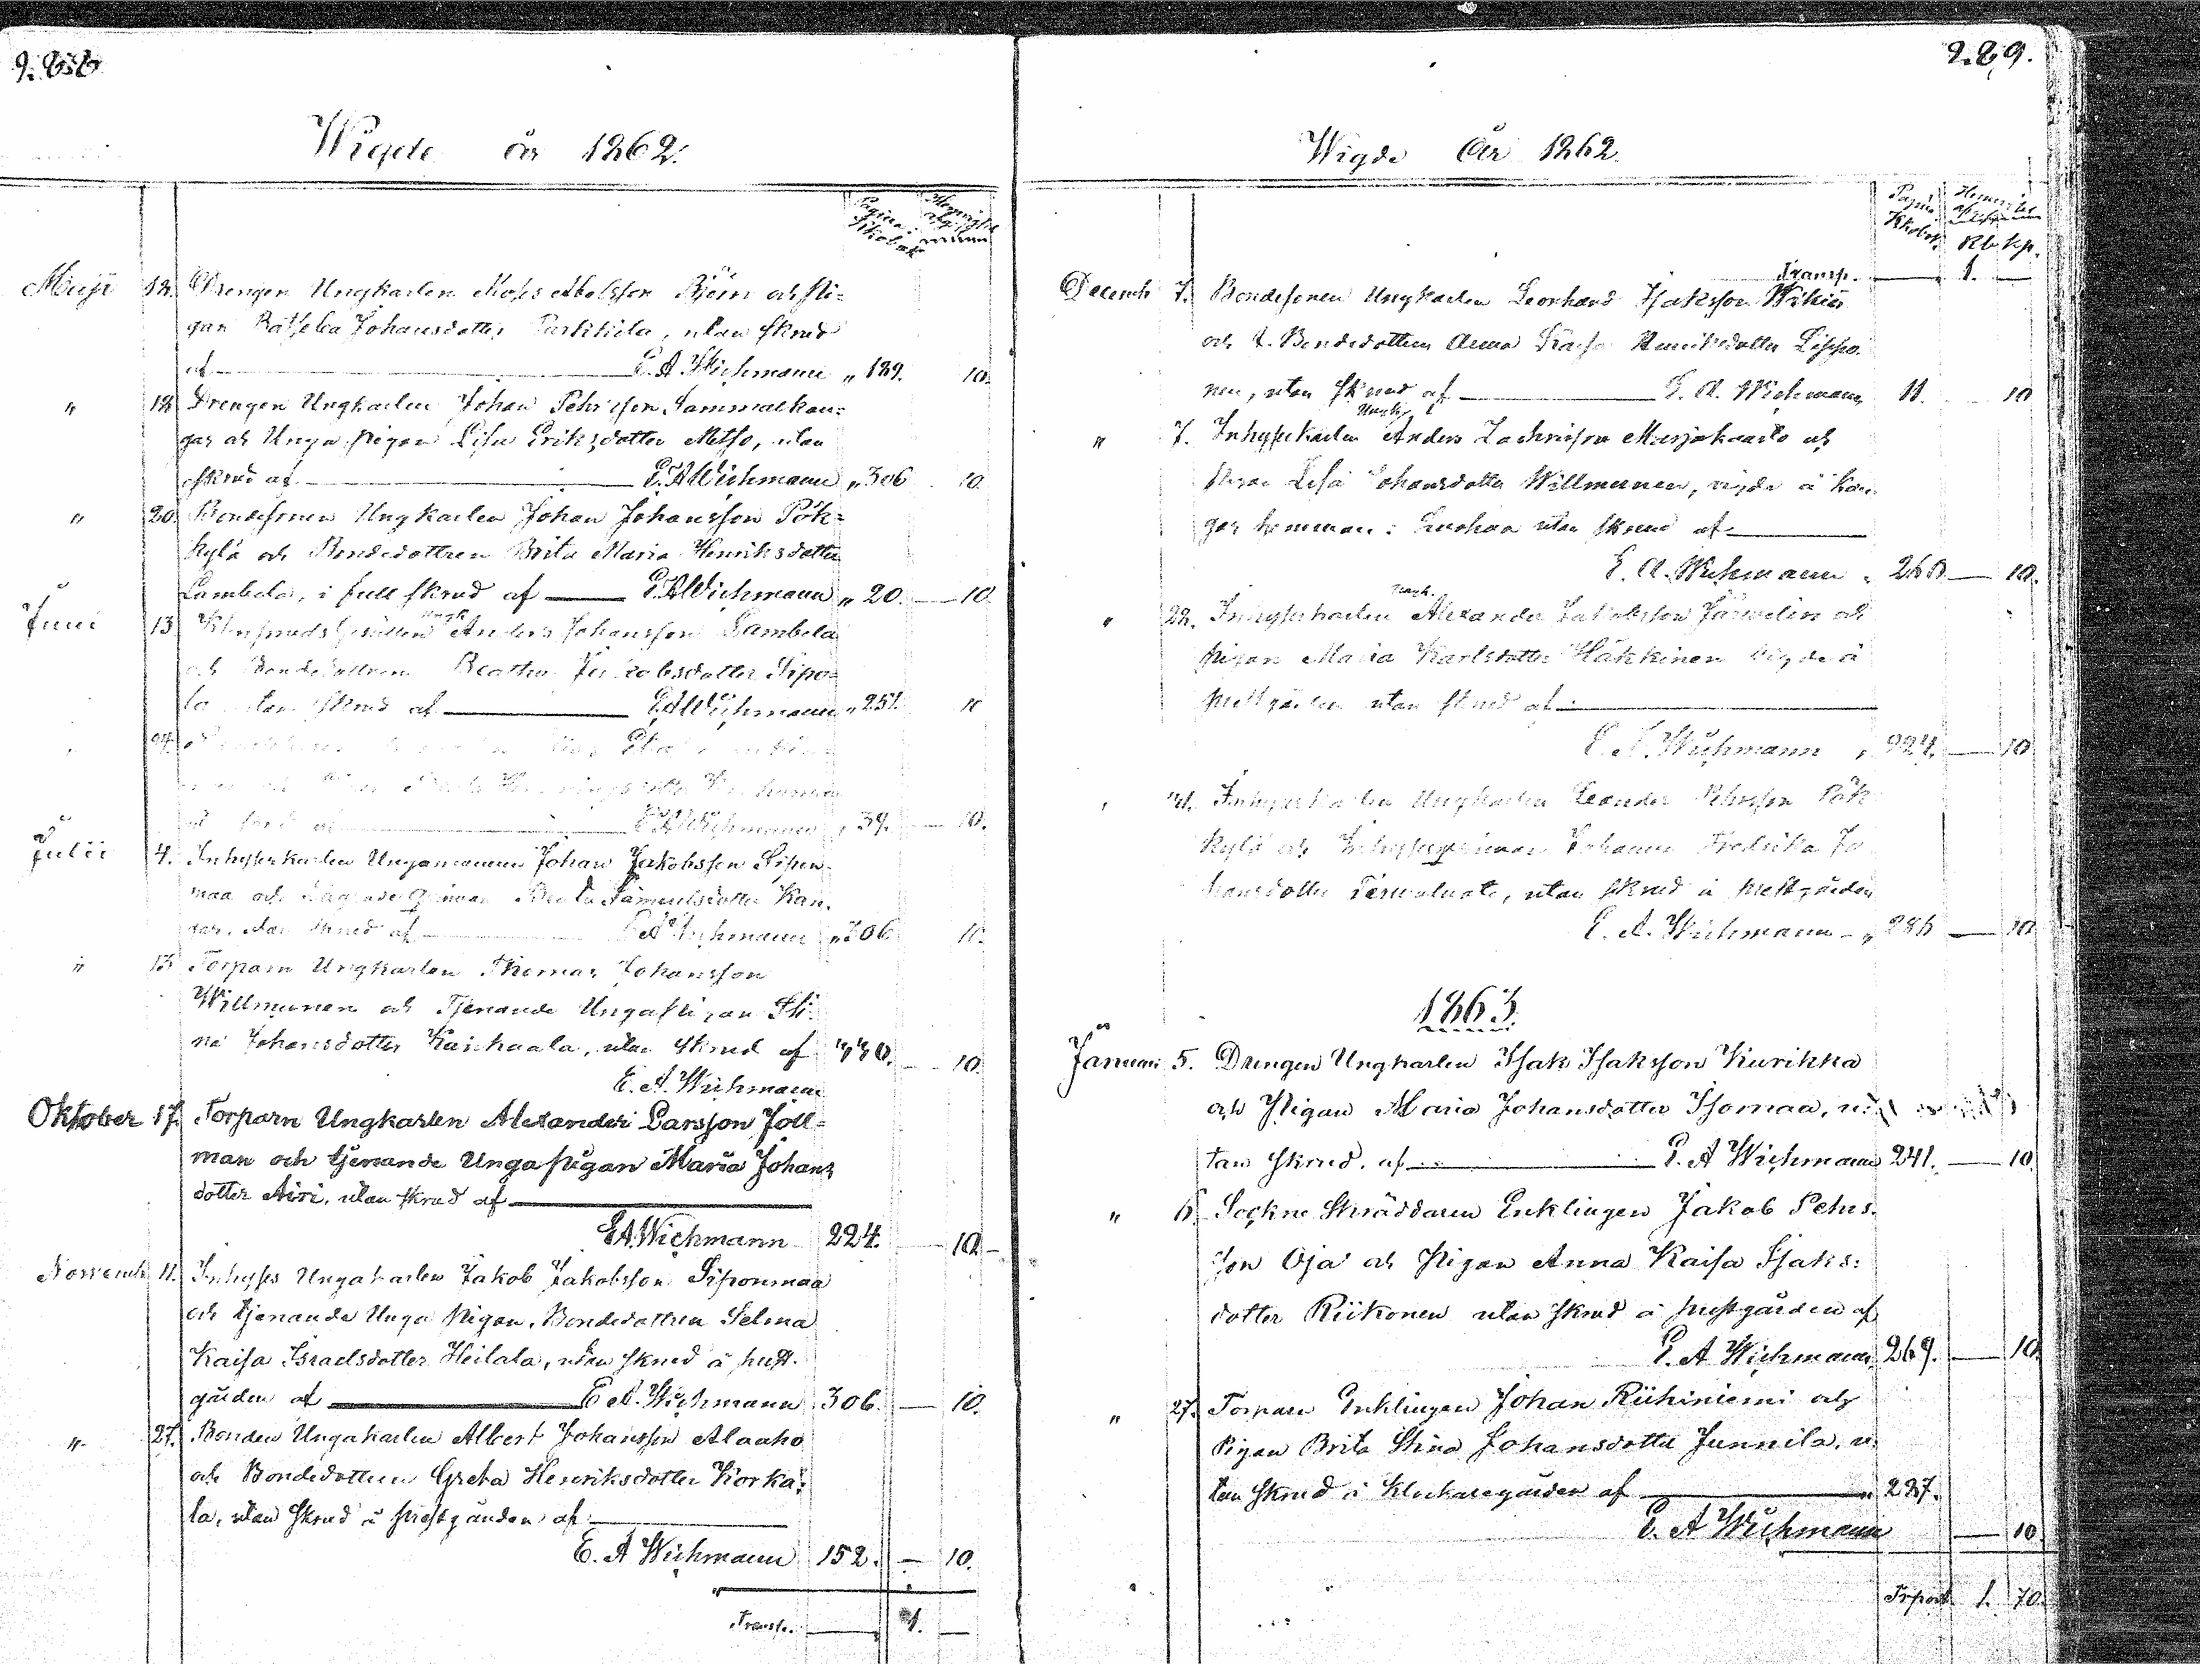 288
Wigde år 1862.
Pagina Kkobok
Maji 12. Drengen Ungkarlen Moses Abelsson Björn och Pi-
gan Bathseba Johansdotter Parkkila, utan skrud
af E. A. Wichmann " 189. 10.
" 12 Drengen Ungkarlen Johan Pehrsson Sammalkan-
gas och Unga pigan Lisa Eriksdotter Metso, utan
skrud af E. A Wichmann " 306 10.
" 20. Bondesonen Ungkarlen Johan Johansson Pök-
kylä och Bondedottren Brita Maria Henriksdotter
Lambela, i full skrud af E. A Wichmann " 20. — 10.
Juni 13 Ungk. Anders Johansson Lambela
och Bondedottren Beatha Jakobsdotter Sipo-
la utan skrud af E. A Wichmann " 251. 10
24.
af E A Wichmann " 39. — 10.
Julii 4. Inhyseskarlen Ungamannen Johan Jakobsson Sipon-
maa och Brita Samuelsdotter Kan-
gas, utan skrud af E A Wichmann " 306 10.
" 13 Torparn Ungkarlen Thomas Johansson
Willmunen och Tjenande Unga Pigan Sti-
na Johansdotter Karhaala, utan skrud af 330. — 10.
E. A. Wichmann
Oktober 17. Torparn Ungkarlen Alexander Larsson Joll-
man och tjenande Unga pigan Maria Johans
dotter Airi, utan skrud af
E. A. Wichmann 224. — 10.
Novemb. 11. Inhyses Ungakarlen Jakob Jakobsson Siponmaa
och tjenande Unga Pigan, Bondedottren Selma
Kaisa Israelsdotter Heilala, utan skrud å prest-
gården af E A. Wichmann 306. — 10.
" 27. Bonden Ungakarlen Albert Johansson Alaaho
och Bondedottren Greta Henriksdotter Korka-
la, utan skrud å prestgården af
E. A Wichmann 152. — 10.
Transp. — 1. —
289.
Wigde År 1862.
Pagina Kkobok. Rb. kp.
Transp. — 1. —
Decemb 7. Bondesonen Ungkarlen Leonhard Isaksson Wikiär
och Bondedottren Anna Kaisa Henriksdotter Lippo-
nen, utan skrud af E. A. Wichmann 11. 10
" 7. Inhyseskarlen Ungk. Anders Zachrisson Marjakaarto och
pigan Lisa Johansdotter Willmunen, vigde å Kan-
gas hemman: utan skrud af
E. A. Wichmann " 260 — 10.
" 22. Inhyseskarlen Ungk. Alexander Jakobsson Järvelin och
pigan Maria Karlsdotter Häkkinen vigde å
prestgården utan skrud af
E. A. Wichmann " 224. — 10
" 31. Inhyseskarlen Ungkarlen Leander Pehrsson Pök-
kylä och Inhysesqvinnan Johanna Fredrika Jo-
hansdotter Tervaluoto, utan skrud å prestgården
E. A. Wichmann " 286 — 10
1863.
Januari 5. Drengen Ungkarlen Isak Isaksson Kurikka
och Pigan Maria Johansdotter Isomaa, u-
tan skrud. af E. A Wichmann 241. — 10.
" 6. Sockne Skräddaren Enklingen Jakob Pehrs-
son Oja och Pigan Anna Kaisa Isaks-
dotter Riikonen utan skrud å prestgården af
E. A Wichmann 269. — 10.
" 27. Torparn Enklingen Johan Riihiniemi och
Pigan Brita Stina Johansdotter Junnila, u-
tan skrud å Klockaregården af " 227.
E. A Wichmann — 10
Trport. 1. 70.